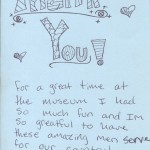 Thank
You!
for a great time at
the museum I had
So much fun and I'm
So greatful to have
these amazing men serve
for our